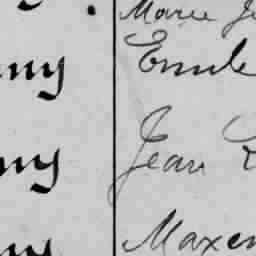 Marie
ny Emile
ny Jean
ny Maxen